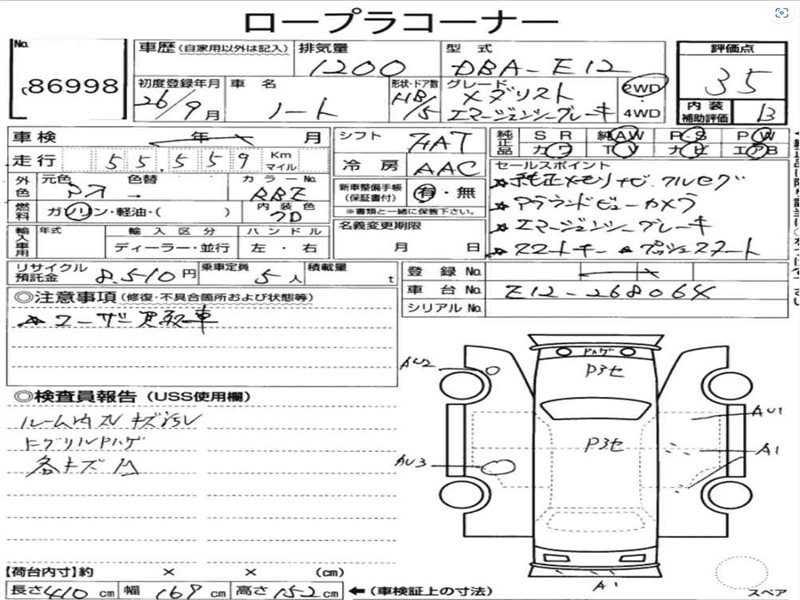 ロープラコーナー
No. 86998
車歴 (自家用以外は記入) 排気量 1200 型式 DBA-E12 評価点 35
初度登録年月 26/9月 車名 ノート 形状・ドア数 HB/5 グレード メダリスト エマージェンシーブレーキ 2WD 4WD 内装補助評価 B
車検 年 月 シフト FAT 純正品 SR 純AW PS PW
カワ TV ナビ エアB
走行 55,559 Km マイル 冷房 AAC セールスポイント
外色 元色 色替 カラーNo. RBE 新車整備手帳 (保証書付) 有・無 ☆純正メモリナビ.フルセグ
※書類と一緒に保管下さい。 ☆アラウンドビューカメラ
燃料 ガソリン・軽油・( ) 内装色 名義変更期限 月 日 ☆エマージェンシーブレーキ
輸入車用 年式 輸入区分 ハンドル ☆スマートキー ☆プッシュスタート
ディーラー・並行 左・右
リサイクル預託金 8,510円 乗車定員 5人 積載量 t 登録No.
車台No. Z12-268064
シリアルNo.
◎注意事項 (修復・不具合箇所および状態等)
☆ユーザー買取車
◎検査員報告 (USS使用欄)
ルーム内スレ キズ
ハゲ
各キズ凹
ハゲ
P3セ
AU2
P3セ
AU1
A1
AU3
A1
スペア
【荷台内寸】約 × × (cm)
長さ 410 cm 幅 169 cm 高さ 152 cm ←(車検証上の寸法)